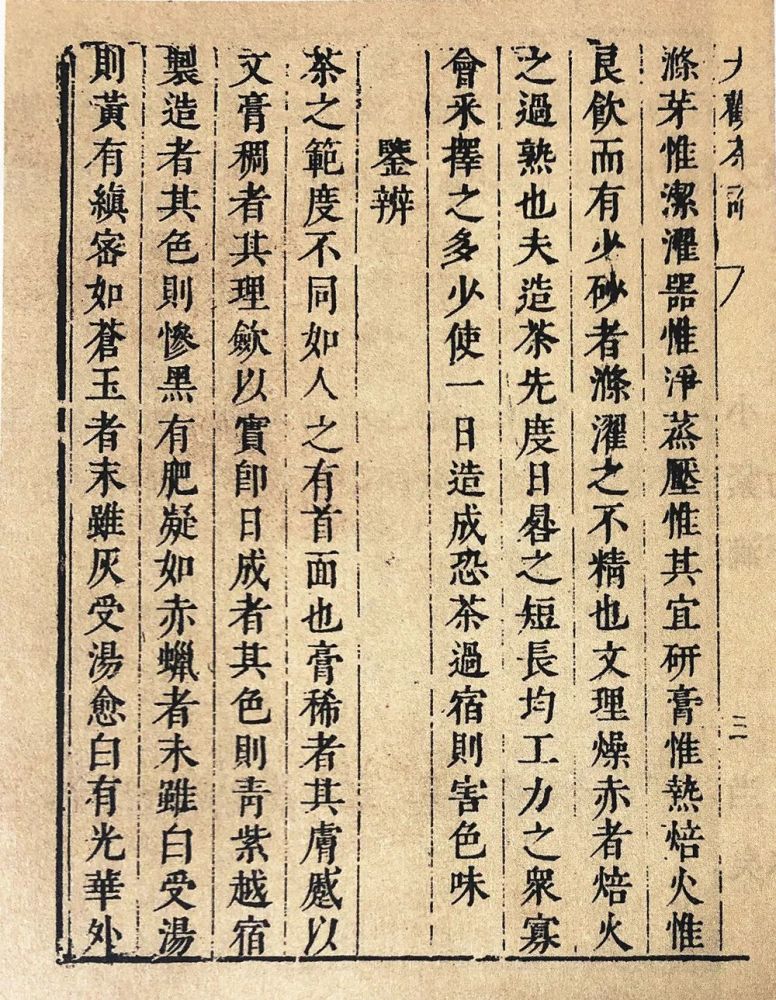 大觀茶論
三
滌芽惟潔濯器惟淨蒸壓惟其宜研膏惟熱焙火惟
良飲而有少砂者滌濯之不精也文理燥赤者焙火
之過熟也夫造茶先度日晷之短長均工力之衆寡
會采擇之多少使一日造成恐茶過宿則害色味
鑒辨
茶之範度不同如人之有首面也膏稀者其膚蹙以
文膏稠者其理歛以實卽日成者其色則青紫越宿
製造者其色則慘黑有肥凝如赤蠟者末雖白受湯
則黃有縝密如蒼玉者末雖灰受湯愈白有光華外